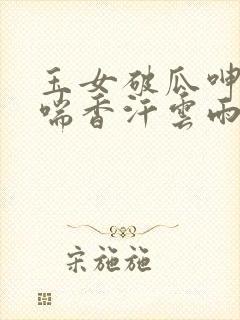 玉女破瓜呻
喘香汗雲雨
宋施施